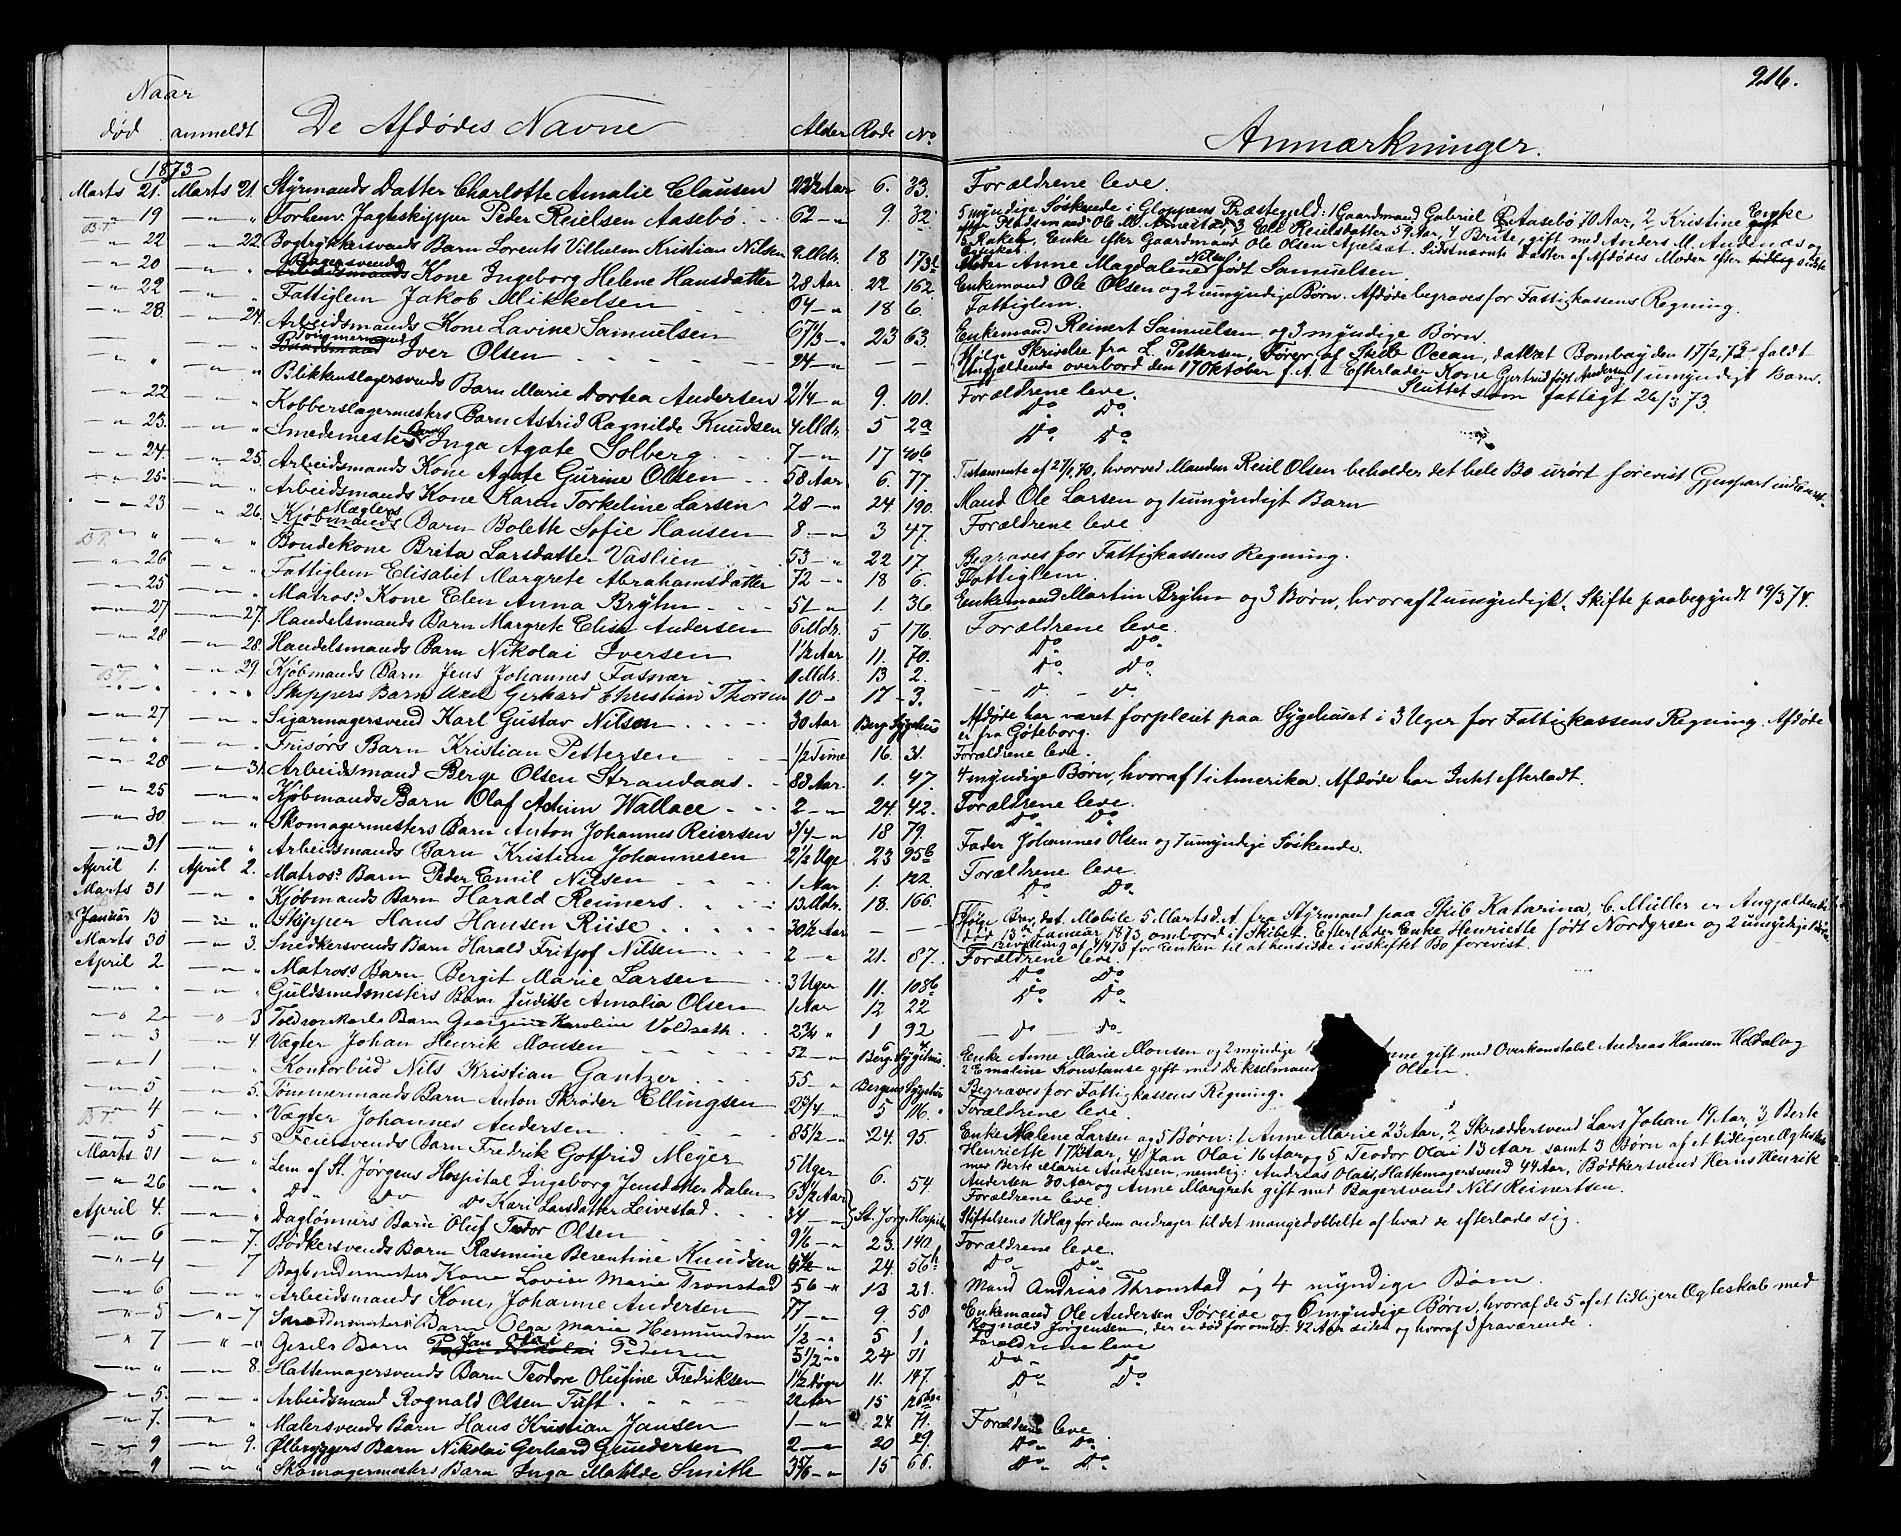 216.
Naar
død anmeldt De Afdødes Navne Alder Rode No. Anmærkninger.
1873
Marts 21. Marts 21. Styrmands Datter Charlotte Amalie Clausen 22½ Aar 6. 33. Forældrene leve.
19 " Forhenv. Jagteskipper Peder Reielsen Aasebø 62 " 9. 32. 5 myndige Søskende i Gloppens Præstegjeld: 1 Gaardmand Gabriel R. Aasebø 70 Aar, 2 Kristine Enke
efter Ole M. Arnestad, 3 Ole Reielsdatter 59 Aar, 4 Brite, gift med Anders M. Andenæs og
5 Rakel, Enke efter Gaardmand Ole Olsen
22 22. Bogtrykkersvends Barn Lorents Vilhelm Kristian Nilsen 9 Mdr. 18 173 Moder Anne Magdalene Nilsen født Samuelsen
20 " Bagersvends Kone Ingeborg Helene Hansdatter 28 Aar 22 162. Enkemand Ole Olsen og 2 umyndige Børn. Afdøde begraves for Fattigkassens Regning.
22 " Fattiglem Jakob Mikkelsen 18 6. Fattiglem.
23 24. Arbeidsmands Kone Lavine Samuelsen 67⅓ 23 63. Enkemand Reinert Samuelsen og 3 myndige Børn.
" " Tømmermand Iver Olsen 24 Ifølge Skrivelse fra L. Pettersen, Fører af Skib Ocean, datteret Bombay den 17/2 73 faldt
Angjældende overbord den 17 Oktober f.A. Efterlader Kone Gjertrud født Andersen og 1 umyndigt Barn.
Sluttet som fattigt 26/3 73.
22 " Blikkenslagersvends Barn Marie Dortea Andersen 2¼ 9. 101. Forældrene leve.
23. " Kobberslagermesters Barn Astrid Ragnilde Knudsen 4 Mdr. 5 29 Do Do
24. " Smedemesters Barn Inga Agate Solberg 7 17 40b Do Do
25. 25. Arbeidsmands Kone Agate Gurine Olsen 58 Aar 6. 77. Testamente af 27/1 70, hvorved Manden Reiel Olsen beholder det hele Bo urørt forevist
23 " Arbeidsmands Kone Karen Torkeline Larsen 28 24 190. Mand Ole Larsen og 1 umyndigt Barn
" 26. Mæglers Barn Bolette Sofie Hansen 8. 3 47. Forældrene leve.
26 " Bondekone Brita Larsdatter Vaslien 53 22 17. Begraves for Fattigkassens Regning.
25 " Fattiglem Elisabet Margrete Abrahamsdatter 72 18 6. Fattiglem.
27 " Matros's Kone Elen Anna Bryhn 51 1. 36. Enkemand Martin Bryhn og 3 Børn, hvoraf 2 umyndige. Skifte paabegyndt 19/3 74.
28 27. Handelsmands Barn Margrete Elise Andersen 6 Mdr. 5 176. Forældrene leve.
" 28. Handelsmands Barn Nikolai Iversen 1½ Aar 11. 70. Do Do
" 29. Kjøbmands Barn Jens Johannes Fasmer Mdr. 13 2. Do Do
" " Skippers Barn Gerhard Christian Thorsen 10 17 3. Do Do
27 " Sigarmagersvend Karl Gustav Nilsen 30 Aar Berg. Sygehus Afdøde har været forpleiet paa Sygehuset i 3 Uger for Fattigkassens Regning. Afdøde
er fra Göteborg.
28 " Frisørs Barn Kristian Pettersen ½ Time 16 31. Forældrene leve.
25 31. Arbeidsmand Berge Olsen Strandaas 88 Aar 1. 47. 4 myndige Børn, hvoraf 1 i Amerika. Afdøde har Intet efterladt.
30. " Kjøbmands Barn Olaf Wallace 2 24. 42. Forældrene leve.
31. " Skomagermesters Barn Anton Johannes Reiersen 3/4 18 79. Do Do
" Arbeidsmands Barn Kristian Johannesen 2½ Uge 23 95b Fader Johannes Olsen og 1 umyndige Søskende.
April 1. April 2. Matros's Barn Peder Emil Nilsen 1 Aar 1. 122. Forældrene leve.
Marts 31 " Kjøbmands Barn Harald Reimers 13 Mdr. 18. 166. Do Do
Januar 13 " Skipper Hans Hansen Riise 30½ Aar Ifølge Brev, dat. Mobile 5 Marts d.A. fra Styrmand paa Skib Katarina, C. Müller er Angjældende
død 13de Januar 1873 ombord i Skibet. Efterlader Enke Henriette født Nordgreen og 2 umyndige Børn
Bevilling af 4/4 73 for Enken til at hensidde i uskiftet Bo forevist.
Marts 30 3. Snedkersvends Barn Harald Fritjof Nilsen 2 21. 87. Forældrene leve.
April 2 " Matros's Barn Bergit Marie Larsen 3 Uger 11. 108b Do Do
" " Guldsmedmesters Barn Juditte Amalia Olsen 1 Aar 12 22 Do Do
2 3 Barn Georgine Karoline Voldseth 2¾ 1 92 Do Do
3 4 Vægter Johan Henrik Monsen 52 Berg. Sygehus. Enke Anne Marie Monsen og 2 myndige gift med Overkonstabel Andreas Hansen Heldal og
2 Emaline Konstanse gift med Olsen.
1 " Kontorbud Nils Kristian Gantzer 55 Bergens Sygehus Begraves for Fattigkassens Regning.
5 5. Tømmermands Barn Anton Skrøder Ellingsen 2¾ 5 116. Forældrene leve.
4 " Vægter Johannes Andersen 85½ 24. 95. Enke Malene Larsen og 5 Børn: 1 Anne Marie 23 Aar, 2 Skræddersvend Lars Johan 19 Aar, 3 Berte
Henriette 17½ Aar, 4 Jan Olai 16 Aar og 5 Teodor Olai 13 Aar samt 3 Børn af et tidligere Ægteskab
med Berte Marie Andersen, nemlig: Andreas Olai, Hattemagersvend 44 Aar, Bødkersvend Hans Henrik
Andersen 30 Aar og Anne Margrete gift med Bagersvend Nils Reinertsen.
5 5 Feiersvends Barn Fredrik Gotfrid Meyer 5 Uger 6. 54. Forældrene leve
Marts 31 " Lem af St. Jørgens Hospital Ingeborg Jensdatter Dalen 63½ Aar St. Jørg. Hospital Stiftelsens Udlæg for dem andrager til det mangedobbelte af hvad de efterlade sig.
26 " Do Do Do Kari Larsdatter Leivestad
April 4. " Daglønners Barn Oluf Teodor Olsen 23. 140. Forældrene leve.
6 7. Bødkersvends Barn Rasmine Berentine Knudsen 24. 56b Do Do
4 7 Bogbindermesters Kone Lovise Marie Tronstad 56 13 21. Mand Andreas Thronstad og 4 myndige Børn.
6 " Arbeidsmands Kone, Johanne Andersen 77 9. 58 Enkemand Ole Andersen Søreide og 6 myndige Børn, hvoraf de 5 af et tidligere Ægteskab med
Rognald Jørgensen, der er død for omtr. 42 Aar siden og hvoraf 3 fraværende.
5 7 Barn Olga Marie Hermundsen ½ 5 1. Forældrene leve
7 " Gesels Barn Jan Olai Pedersen 5½ 24 31 Do Do
" 8. Hattemagersvends Barn Teodore Olufine Fredriksen 1½ Døgn 11. 147. Do Do
5. " Arbeidsmand Rognald Olsen Tuft 22 Aar 15
7. " Malersvends Barn Hans Kristian Jansen 1 24. 71. Forældrene leve
9 9. Ølbryggers Barn Nikolai Gerhard Gundersen 2 20 29. Do Do
9 " Skomagermesters Barn Inga Matilde Smith 15 66. Do Do